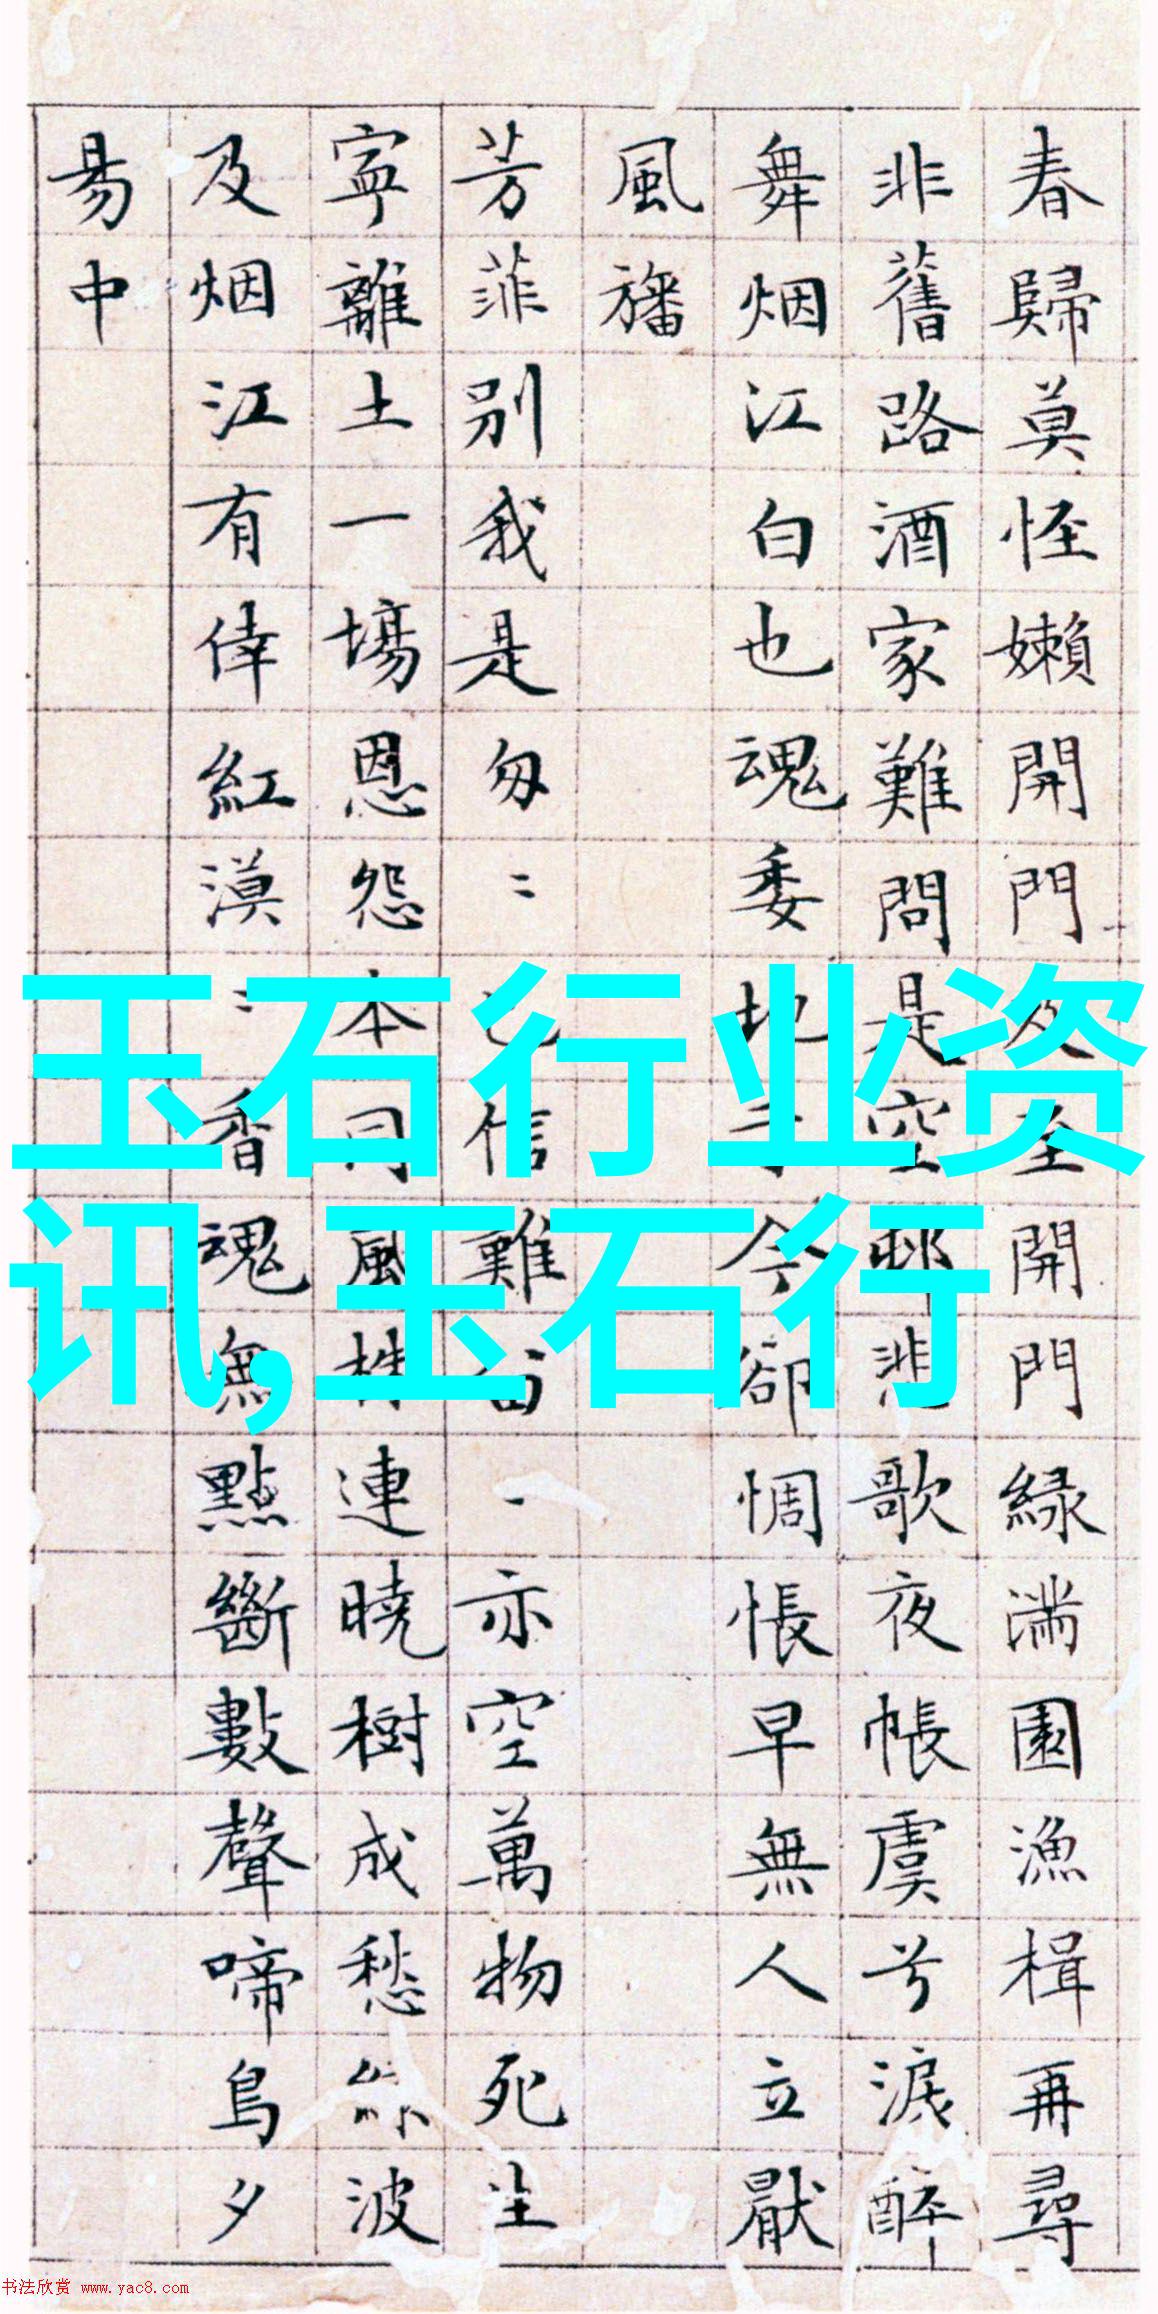 春歸莫怪嬾開門及至開門緑滿園漁楫再尋
非舊路酒家難問是空邨悲歌夜帳虞兮淚醉
舞烟江白也魂委地今卻惆悵早無人立厭
風旛
芳菲别我是匆〻已信難留一亦空萬物死生
寧離土一塲恩怨本同風株連曉樹成愁波
及烟江有倖紅漠〻香魂無點斷數聲啼鳥夕
易中
玉石行业资
讯,玉石行
书法欣赏 www.yac8.com